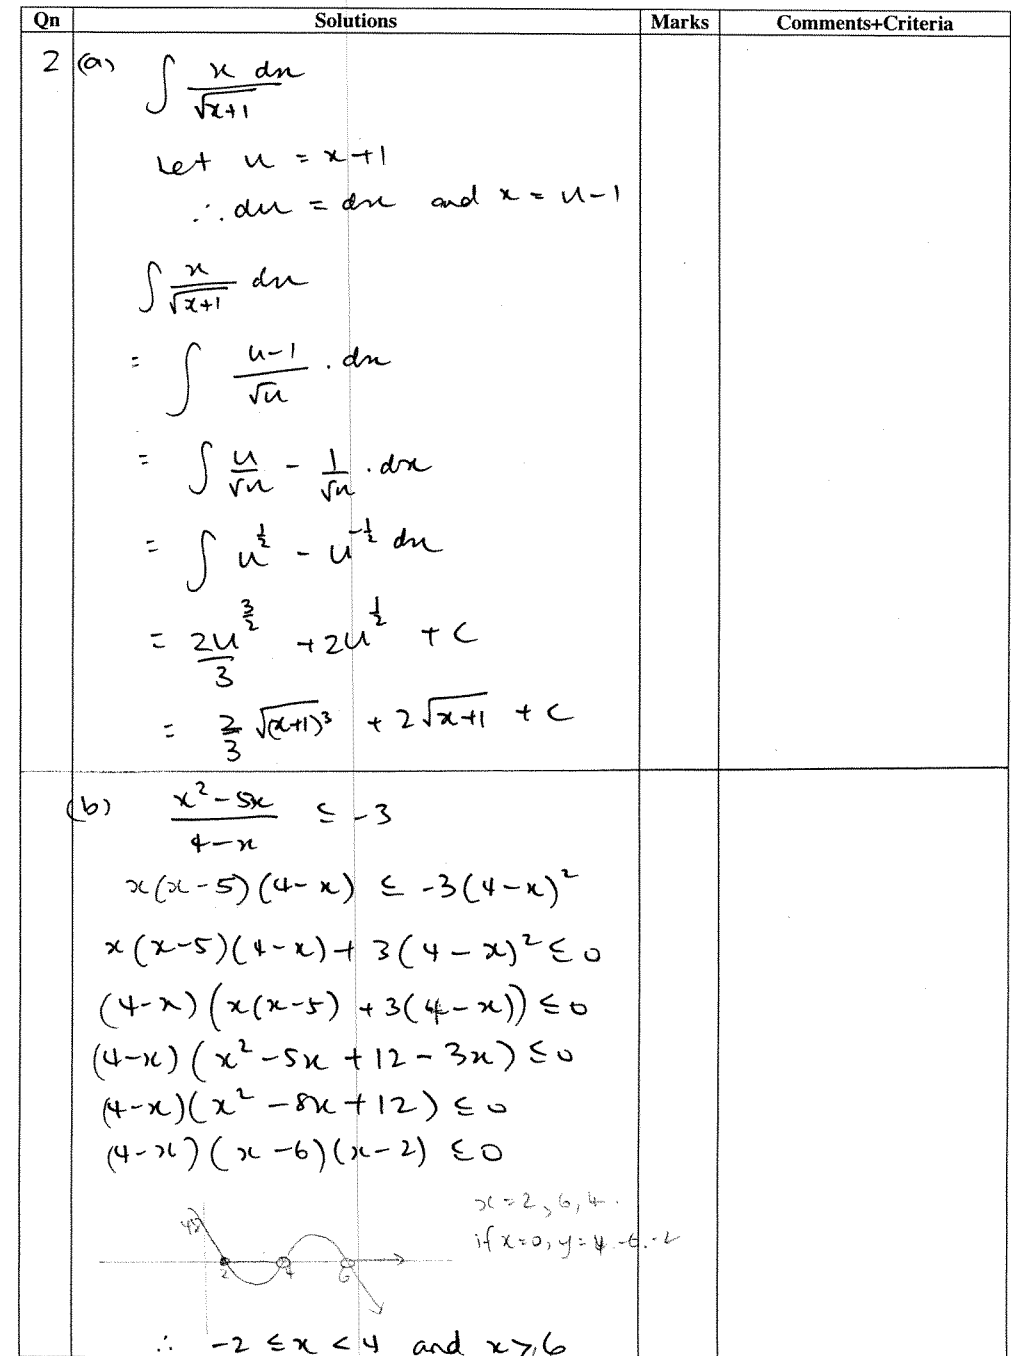 Qn Solutions Marks Comments+Criteria
2 (a) ∫ x dx / √x+1
Let u = x+1
∴ du = dx and x = u-1
∫ x/√x+1 dx
= ∫ u-1/√u . dx
= ∫ u/√u - 1/√u . dx
= ∫ u^½ - u^-½ du
= 2u^3/2 / 3 + 2u^½ + C
= 2/3 √(x+1)³ + 2√x+1 + C
(b) x²-5x / 4-x ≤ -3
x(x-5)(4-x) ≤ -3(4-x)²
x(x-5)(4-x) + 3(4-x)² ≤ 0
(4-x)(x(x-5) + 3(4-x)) ≤ 0
(4-x)(x²-5x+12-3x) ≤ 0
(4-x)(x²-8x+12) ≤ 0
(4-x)(x-6)(x-2) ≤ 0
x=2, 6, 4.
if x=0, y=4.-6.-2
48
2 4 6
∴ -2 ≤ x < 4 and x ≥ 6